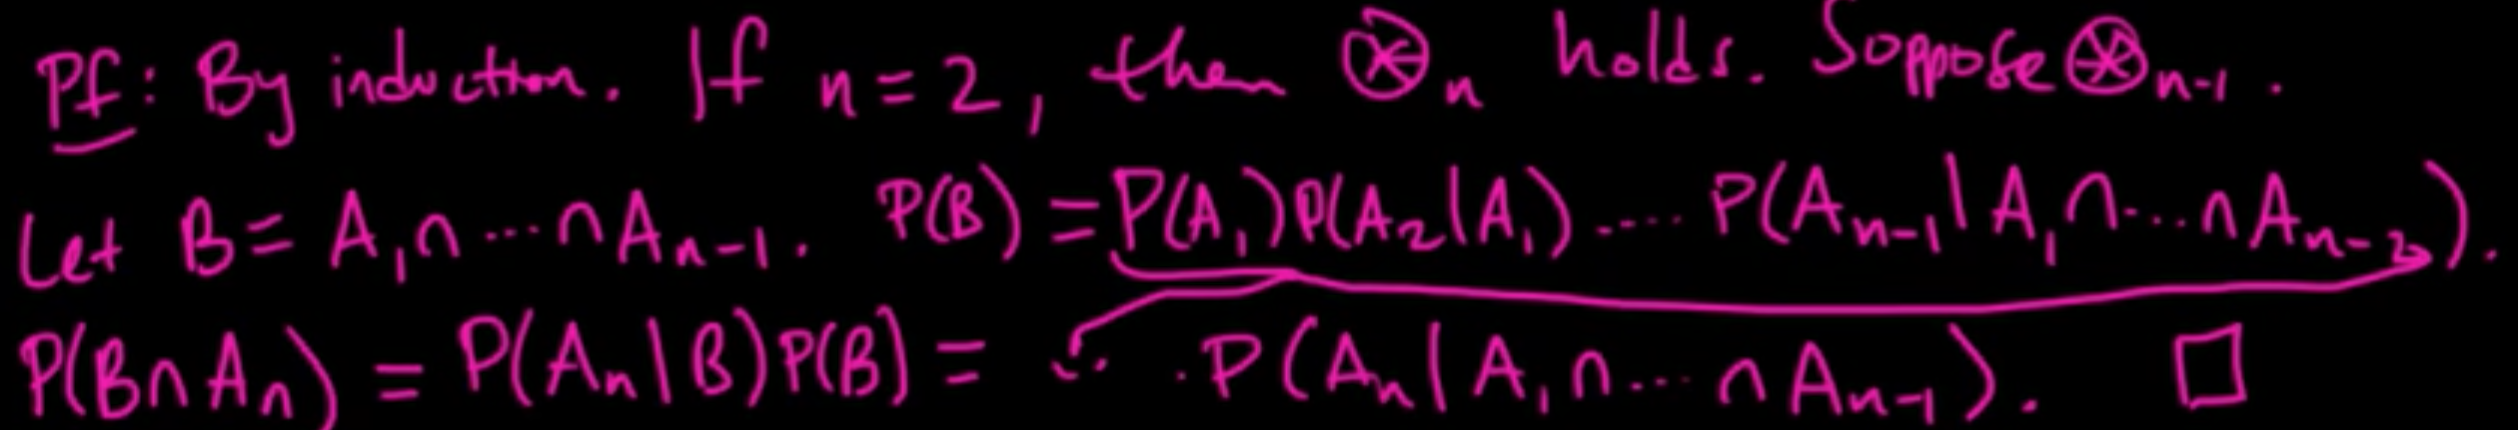 Pf: By induction. If n = 2, then ⊛ₙ holds. Suppose ⊛ₙ₋₁.
Let B = A₁ ∩ ··· ∩ Aₙ₋₁. P(B) = P(A₁)P(A₂|A₁) ···· P(Aₙ₋₁|A₁ ∩ ··· ∩ Aₙ₋₂).
P(B ∩ Aₙ) = P(Aₙ|B)P(B) = ··· · P(Aₙ|A₁ ∩ ··· ∩ Aₙ₋₁). □